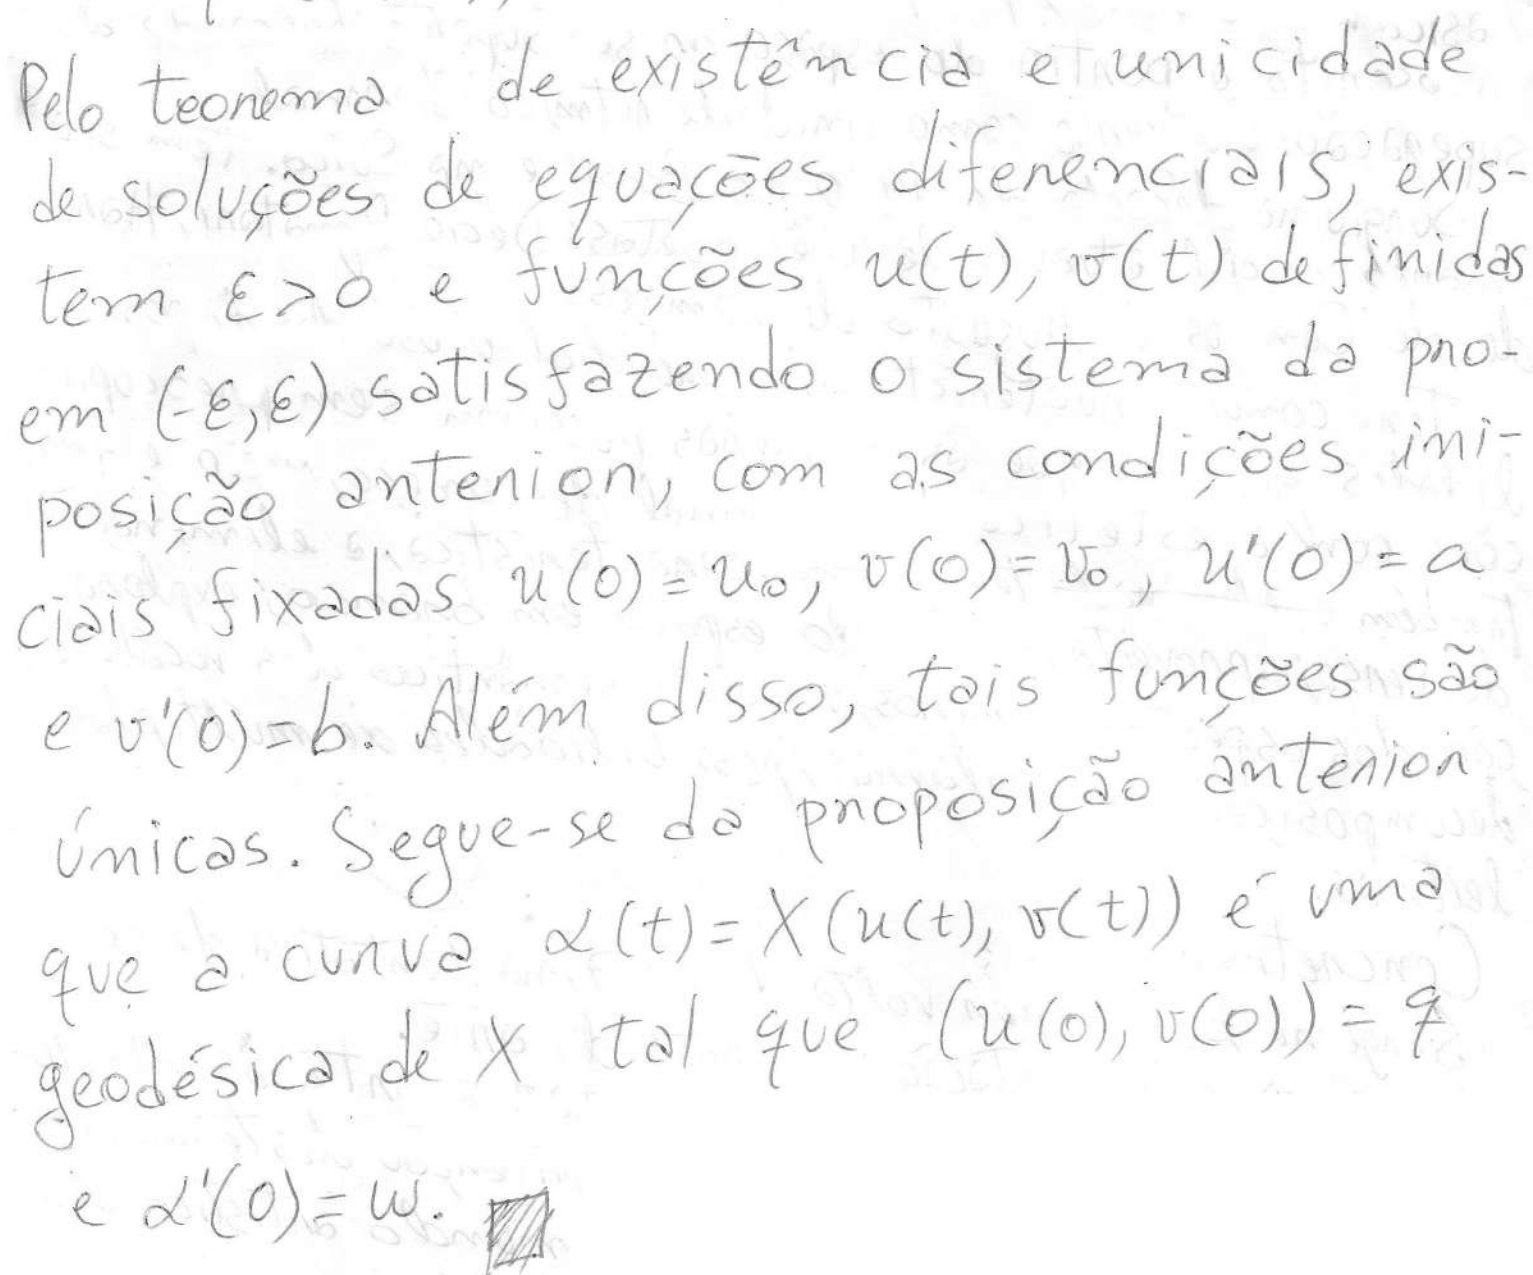 Pelo teorema de existência e unicidade
de soluções de equações diferenciais, exis-
tem ε>0 e funções u(t), v(t) definidas
em (-ε,ε) satisfazendo o sistema da pro-
posição anterior, com as condições ini-
ciais fixadas u(0)=u₀, v(0)=v₀, u'(0)=a
e v'(0)=b. Além disso, tais funções são
únicas. Segue-se da proposição anterior
que a curva α(t)=X(u(t), v(t)) é uma
geodésica de X tal que (u(0), v(0))=q
e α'(0)=w.